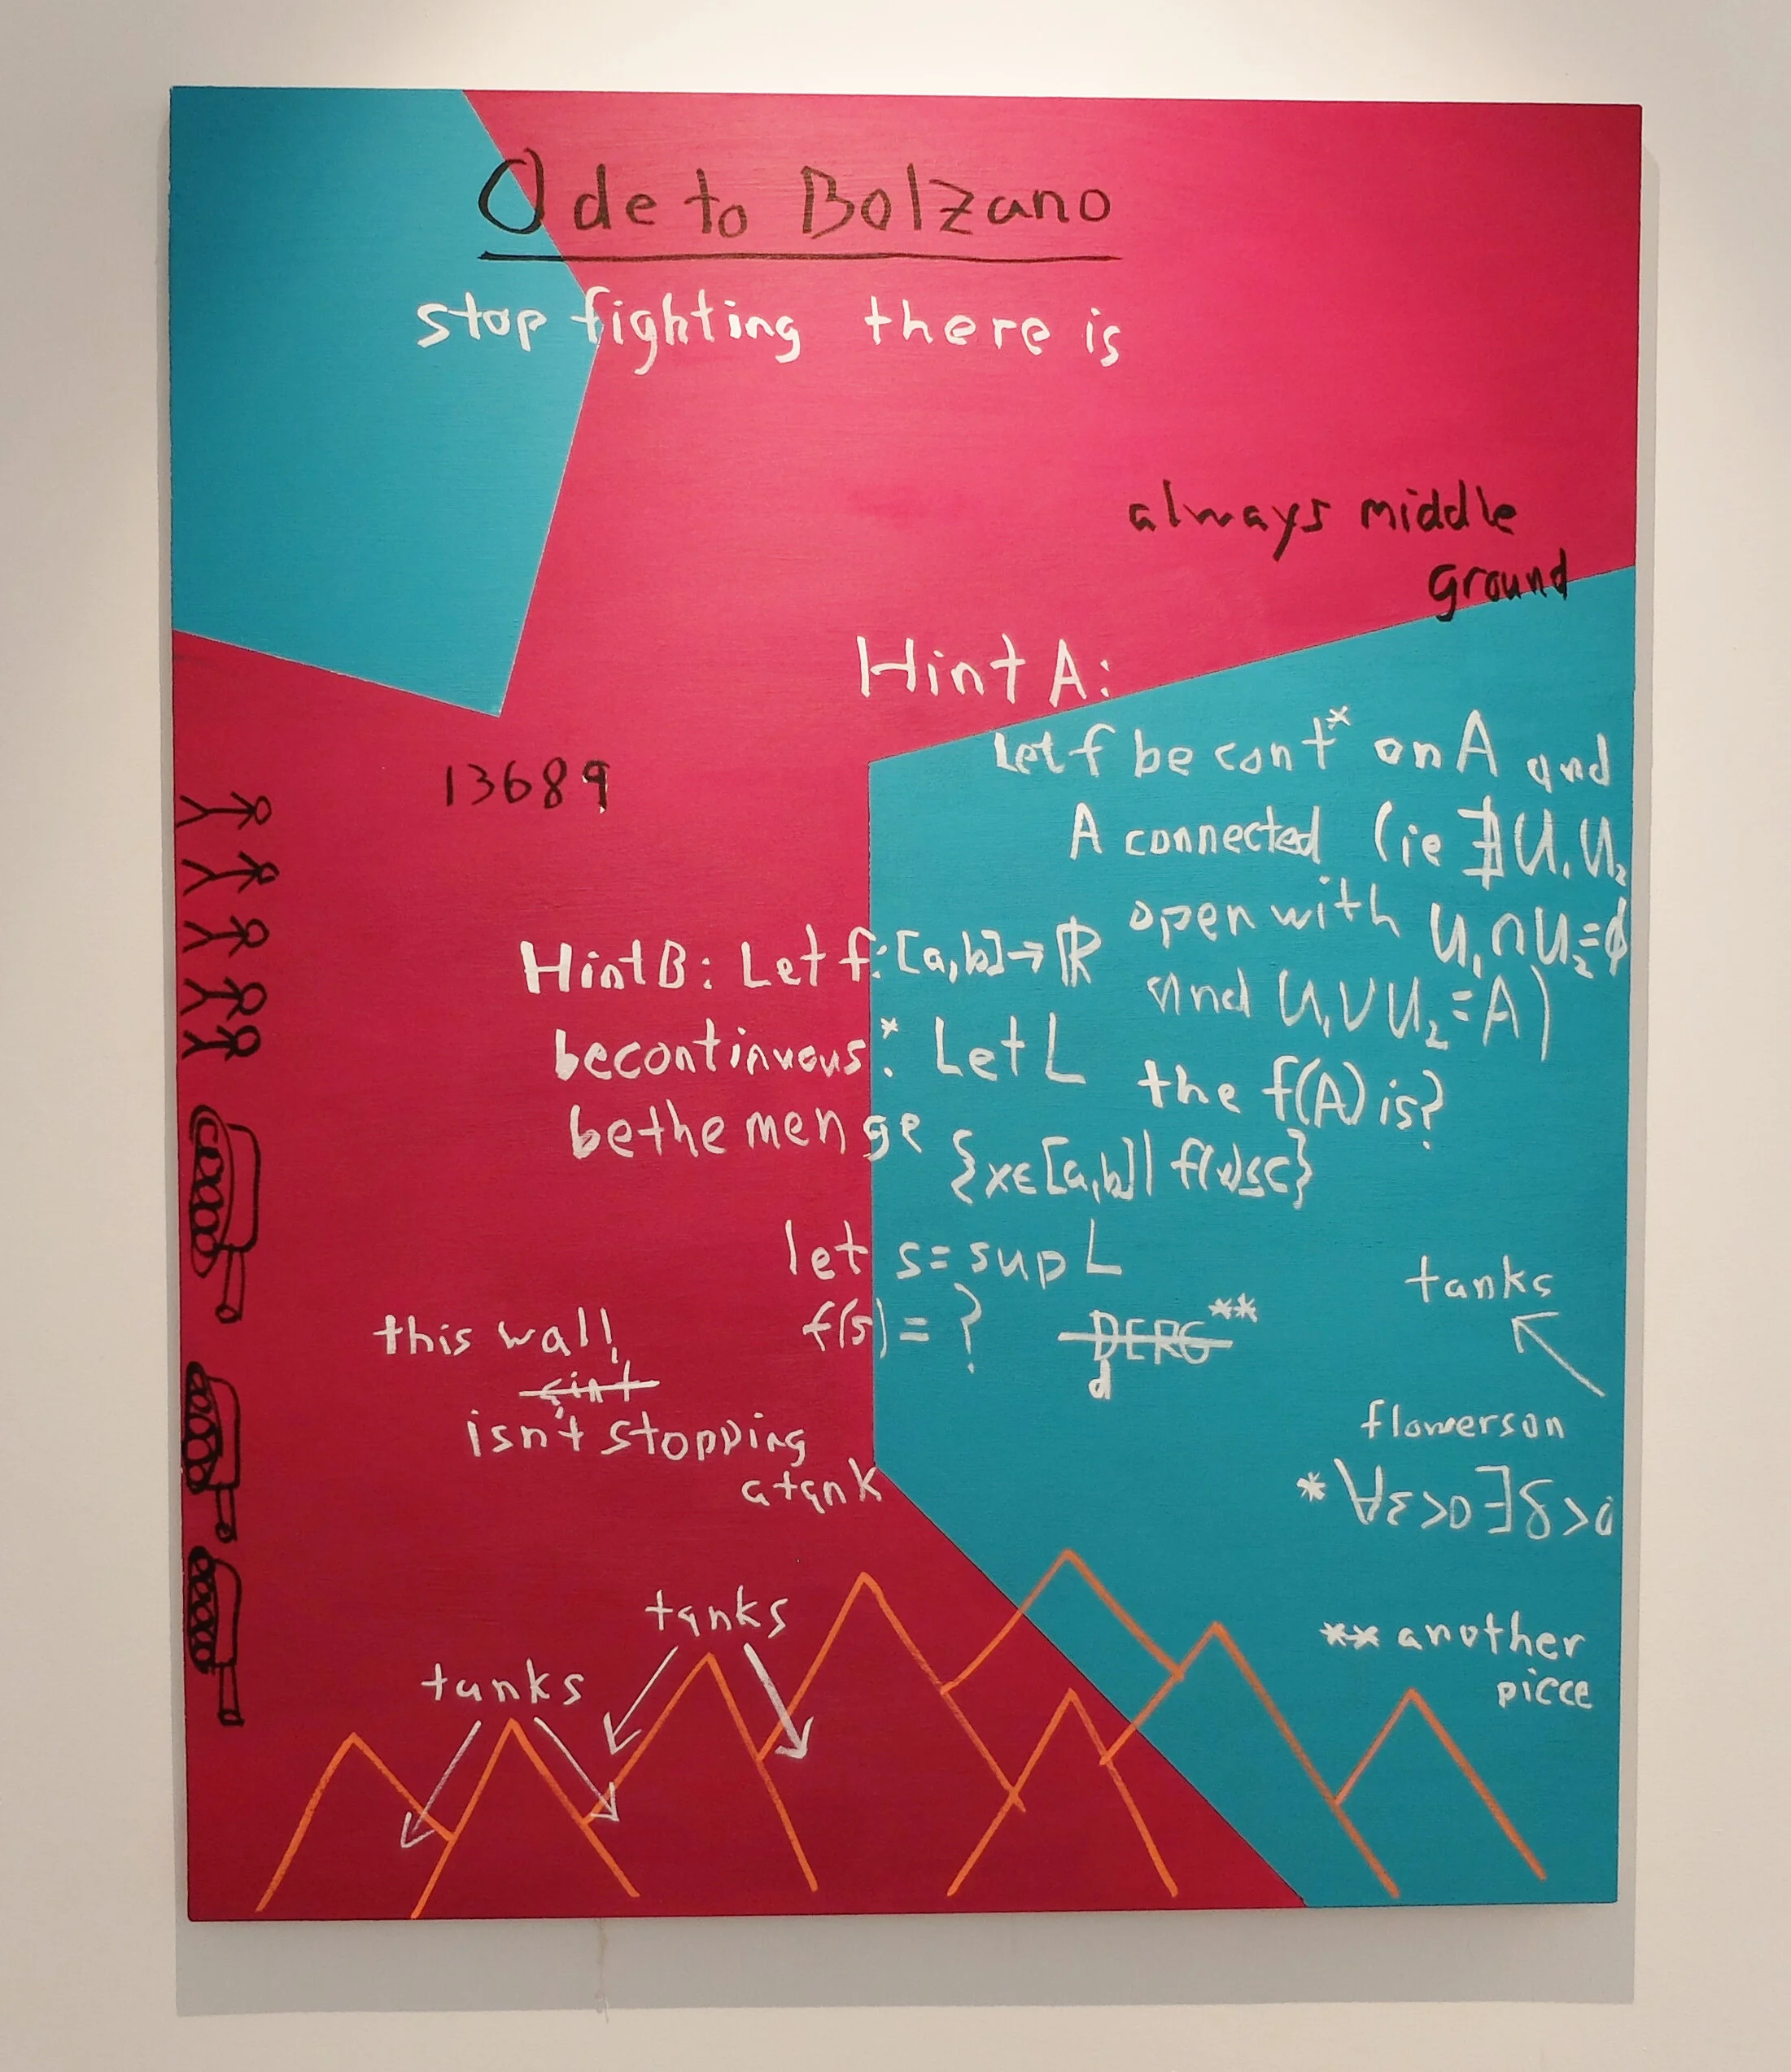 Ode to Bolzano
stop fighting there is
always middle
ground
Hint A:
Let f be cont* on A and
A connected (ie ∄ U₁ U₂
open with U₁∩U₂=∅
and U₁∪U₂=A)
the f(A) is?
13689
Hint B: Let f:[a,b]→ℝ
be continuous*. Let L
be the menge
{x∈[a,b]| f(x)≤c}
let s=sup L
f(s)=?
DERG**
d
this wall
isn't stopping
a tank
tanks
flowerson
*∀ε>0∃δ>0
** another
piece
tanks
tanks